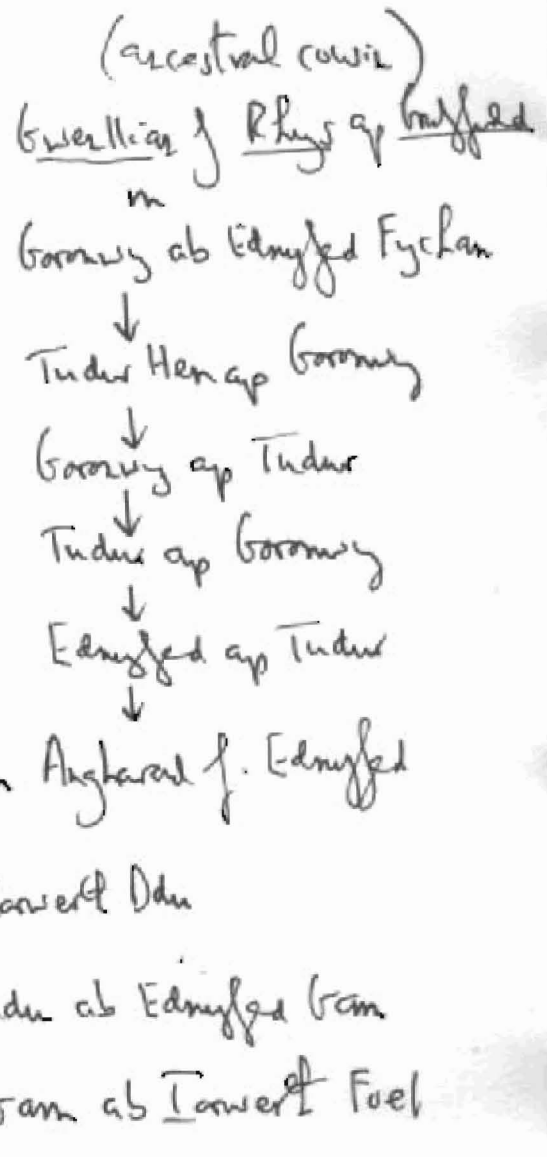 (ancestral cousin)
Gwenllian f Rhys ap Gruffudd
m
Goronwy ab Ednyfed Fychan
↓
Tudur Hen ap Goronwy
↓
Goronwy ap Tudur
↓
Tudur ap Goronwy
↓
Ednyfed ap Tudur
↓
Angharad f. Ednyfed
Ddu
ab Ednyfed Gam
ab Iorwerth Foel